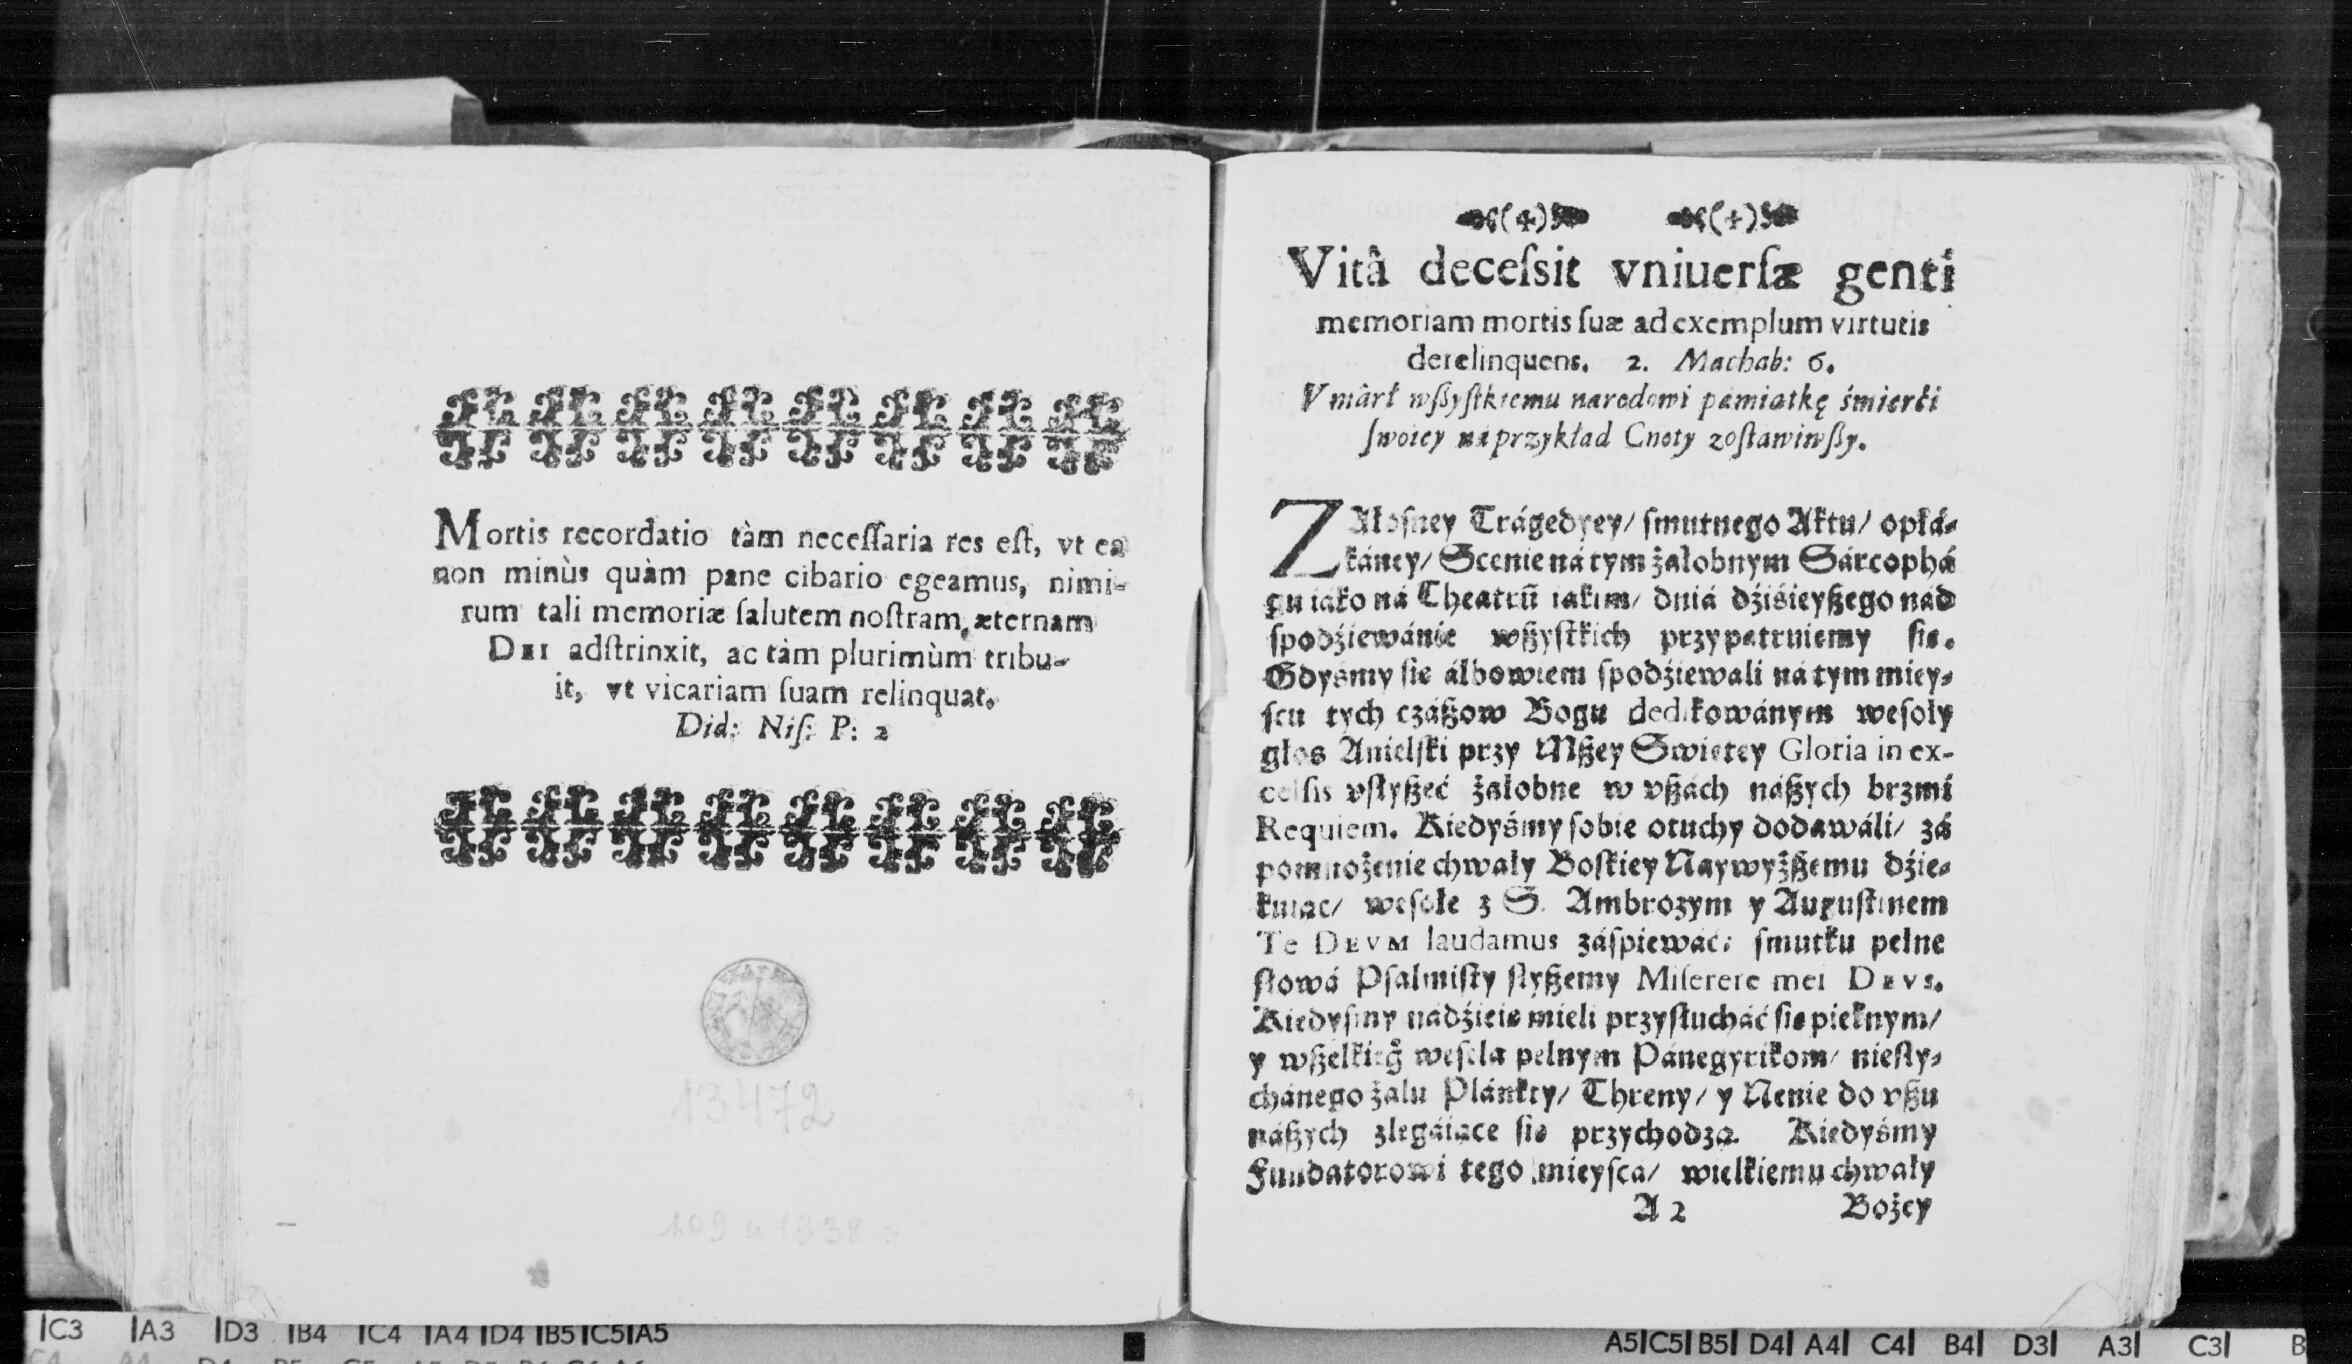 Mortis recordatio tàm neceſſaria res eſt, vt ea
non minùs quàm pane cibario egeamus, nimi-
rum tali memoriæ ſalutem noſtram, æternam
DEI adſtrinxit, ac tàm plurimùm tribu-
it, vt vicariam ſuam relinquat.
Did: Niſ: P: 2
13472
Vitâ deceſsit vniuerſæ genti
memoriam mortis ſuæ ad exemplum virtutis
derelinquens. 2. Machab: 6.
Vmárł wßyſtkiemu narodowi pamiatkę śmierći
ſwoiey ná przykład Cnoty zoſtawiwßy.
ZAłoſney Trágedyey/ ſmutnego Aktu/ opłá-
káney/ Scenie ná tym żałobnym Sárcophá
gu iáko ná Theatrū iákim/ dniá dźiśieyßego nád
ſpodźiewánie wßyſtkich przypatruiemy ſie.
Gdyśmy ſie álbowiem ſpodźiewali ná tym miey-
ſcu tych czáßow Bogu dedikowánym weſoły
głos Anielſki przy Mßey Swietey Gloria in ex-
celſis vſłyßeć żałobne w vßách náßych brzmi
Requiem. Kiedyśmy ſobie otuchy dodawáli/ zá
pomnożenie chwały Boſkiey Naywyżßemu dźie-
kuiac/ weſołe z S. Ambrozym y Auguſtinem
Te DEVM laudamus záſpiewáć: ſmutku pełne
ſłowá Pſalmiſty ſłyßemy Miſerere mei DEVS.
Kiedyſmy nádźieie mieli przyſłucháć ſie pieknym/
y wßelkieg̊ weſela pelnym Pánegyrikom/ nieſły-
chánego żalu Plánkty/ Threny/ y Nenie do vßu
náßych zlegáiące ſie przychodzą. Kiedyśmy
Fundatorowi tego mieyſca/ wielkiemu chwały
A 2 Bożey
C3 A3 D3 B4 C4 A4 D4 B5 C5 A5
A5 C5 B5 D4 A4 C4 B4 D3 A3 C3 B